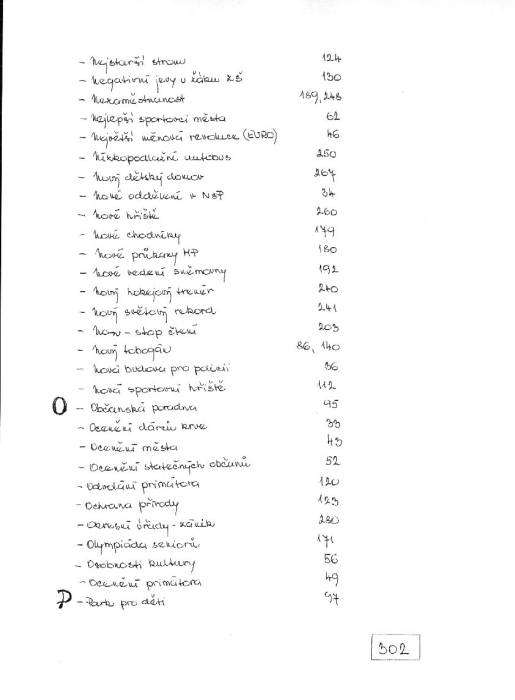 - Nejstarší strom 124
- Negativní jevy u žáků ZŠ 130
- Nezaměstnanost 189, 248
- Nejlepší sportovci města 62
- Největší měnová revoluce (EURO) 46
- Nízkopodlažní autobus 250
- Nový dětský domov 267
- Nové oddělení v NsP 34
- Nové hřiště 260
- Nové chodníky 179
- Nové průkazy MP 180
- Nové vedení sněmovny 192
- Nový hokejový trenér 240
- Nový světový rekord 241
- Non - stop čtení 203
- Nový tobogán 86, 140
- Nová budova pro policii 36
- Nová sportovní hřiště 112
O - Občanská poradna 95
- Ocenění dárců krve 33
- Ocenění města 43
- Ocenění statečných občanů 52
- Odvolání primátora 120
- Ochrana přírody 123
- Okresní úřady - zánik 280
- Olympiáda seniorů 171
- Osobnosti kultury 56
- Ocenění primátora 49
P - Park pro děti 97
302